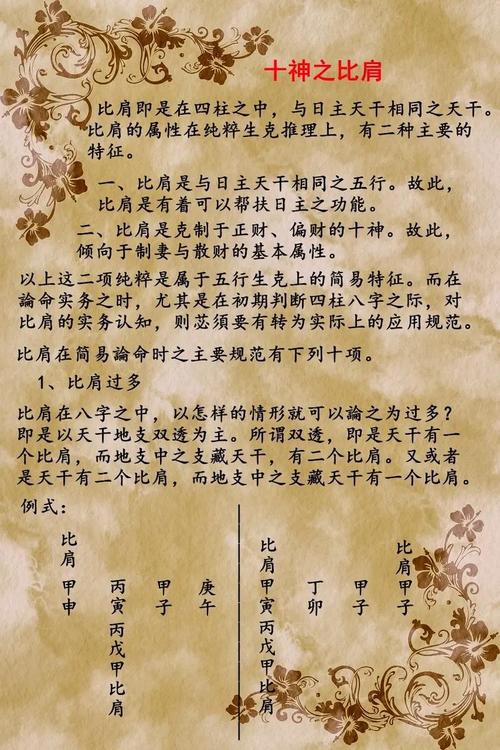 十神之比肩
比肩即是在四柱之中，与日主天干相同之天干。
比肩的属性在纯粹生克推理上，有二种主要的
特征。
一、比肩是与日主天干相同之五行。故此，
比肩是有着可以帮扶日主之功能。
二、比肩是克制于正财、偏财的十神。故此，
倾向于制妻与散财的基本属性。
以上这二项纯粹是属于五行生克上的简易特征。而在
論命实务之时，尤其是在初期判断四柱八字之际，对
比肩的实务认知，则苾須要有转为实际上的应用规范。
比肩在简易論命时之主要规范有下列十项。
1、比肩过多
比肩在八字之中，以怎样的情形就可以論之为过多？
即是以天干地支双透为主。所谓双透，即是天干有一
个比肩，而地支中之支藏天干，有二个比肩。又或者
是天干有二个比肩，而地支中之支藏天干有一个比肩。
例式：
比肩甲申
丙寅丙戊甲比肩
甲子
庚午
比肩甲寅丙戊甲比肩
丁卯
甲子
比肩甲子